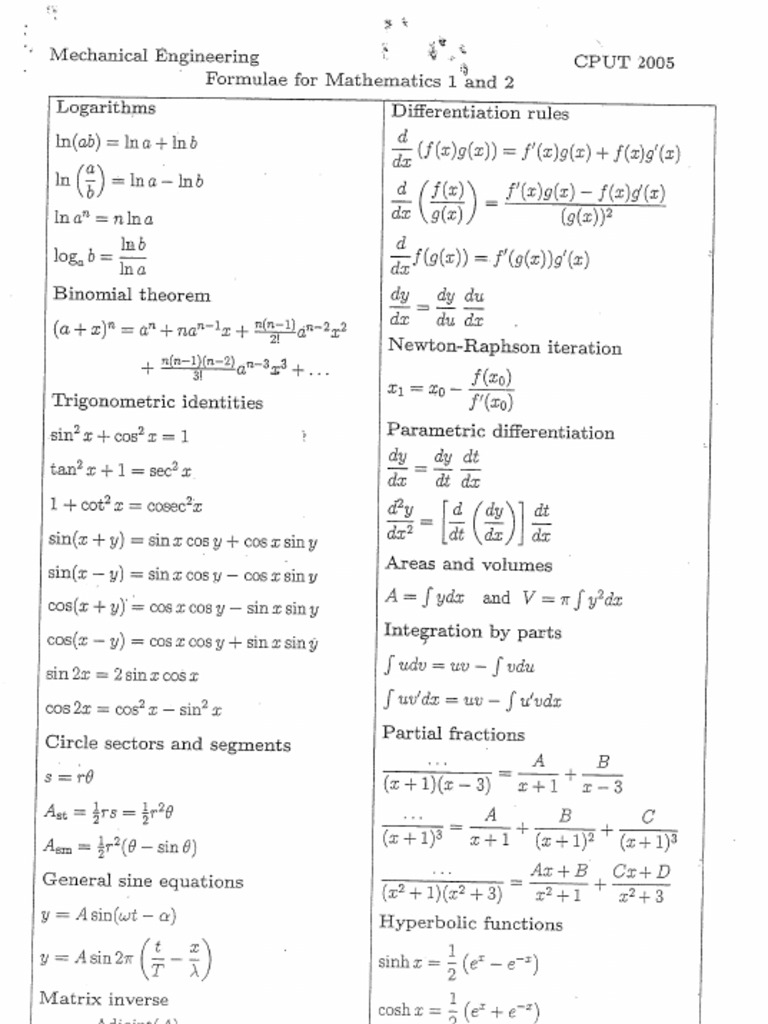 Mechanical Engineering CPUT 2005
Formulae for Mathematics 1 and 2
Logarithms
ln(ab) = ln a + ln b
ln (a/b) = ln a − ln b
ln aⁿ = n ln a
logₐ b = ln b / ln a
Binomial theorem
(a + x)ⁿ = aⁿ + naⁿ⁻¹x + n(n−1)/2! aⁿ⁻²x²
+ n(n−1)(n−2)/3! aⁿ⁻³x³ + ...
Trigonometric identities
sin² x + cos² x = 1
tan² x + 1 = sec² x
1 + cot² x = cosec²x
sin(x + y) = sin x cos y + cos x sin y
sin(x − y) = sin x cos y − cos x sin y
cos(x + y) = cos x cos y − sin x sin y
cos(x − y) = cos x cos y + sin x sin y
sin 2x = 2 sin x cos x
cos 2x = cos² x − sin² x
Circle sectors and segments
s = rθ
Aₛₜ = ½rs = ½r²θ
Aₛₘ = ½r²(θ − sin θ)
General sine equations
y = A sin(ωt − α)
y = A sin 2π (t/T − x/λ)
Matrix inverse
Differentiation rules
d/dx (f(x)g(x)) = f′(x)g(x) + f(x)g′(x)
d/dx (f(x)/g(x)) = (f′(x)g(x) − f(x)g′(x))/(g(x))²
d/dx f(g(x)) = f′(g(x))g′(x)
dy/dx = dy/du du/dx
Newton-Raphson iteration
x₁ = x₀ − f(x₀)/f′(x₀)
Parametric differentiation
dy/dx = dy/dt dt/dx
d²y/dx² = [d/dt (dy/dx)] dt/dx
Areas and volumes
A = ∫ ydx and V = π ∫ y²dx
Integration by parts
∫ udv = uv − ∫ vdu
∫ uv′dx = uv − ∫ u′vdx
Partial fractions
.../((x + 1)(x − 3)) = A/(x + 1) + B/(x − 3)
.../(x + 1)³ = A/(x + 1) + B/(x + 1)² + C/(x + 1)³
.../((x² + 1)(x² + 3)) = (Ax + B)/(x² + 1) + (Cx + D)/(x² + 3)
Hyperbolic functions
sinh x = 1/2 (eˣ − e⁻ˣ)
cosh x = 1/2 (eˣ + e⁻ˣ)